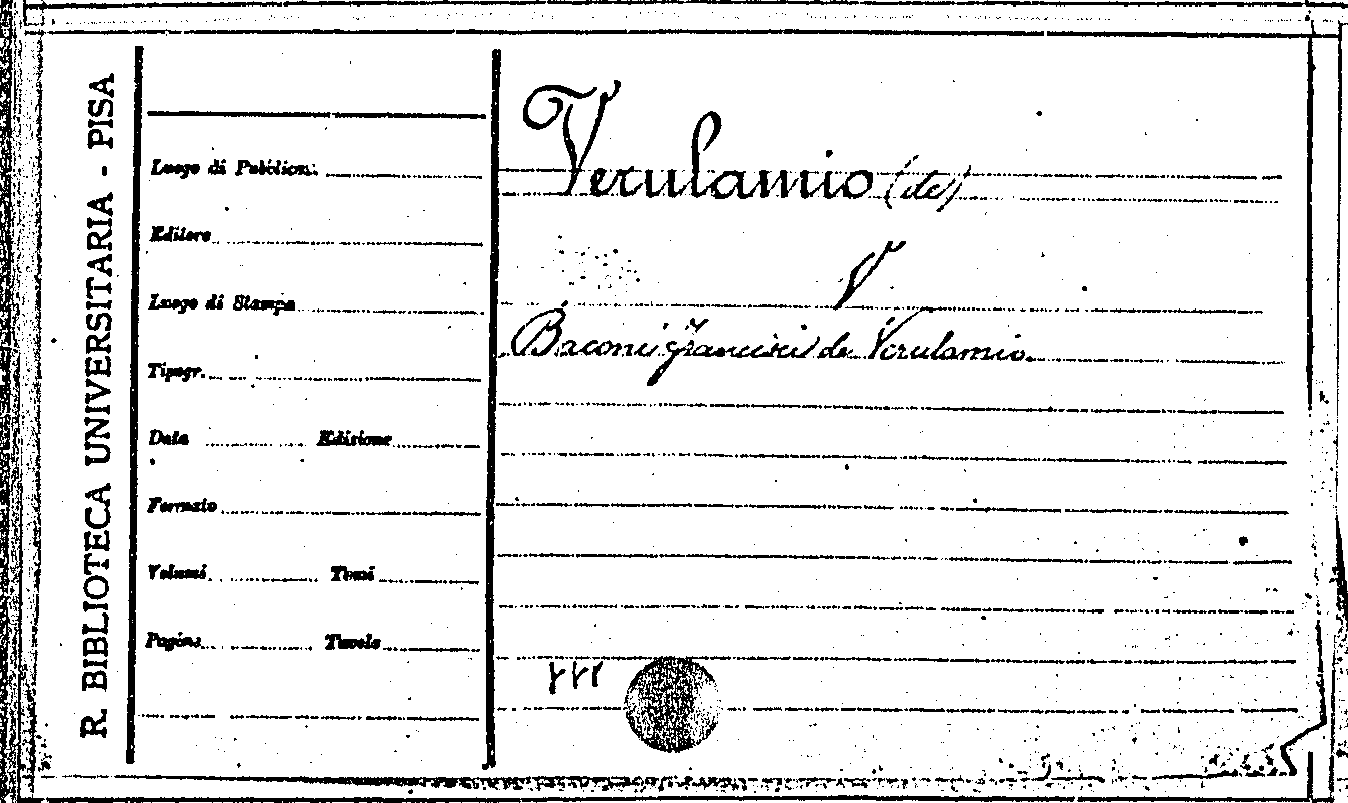 R. BIBLIOTECA UNIVERSITARIA - PISA
Luogo di Pubblicaz.
Editore
Luogo di Stampa
Tipogr.
Data Edizione
Formato
Volumi Tomi
Pagine Tavole
Verulamio (de)
V
Baconi Francisci de Verulamio